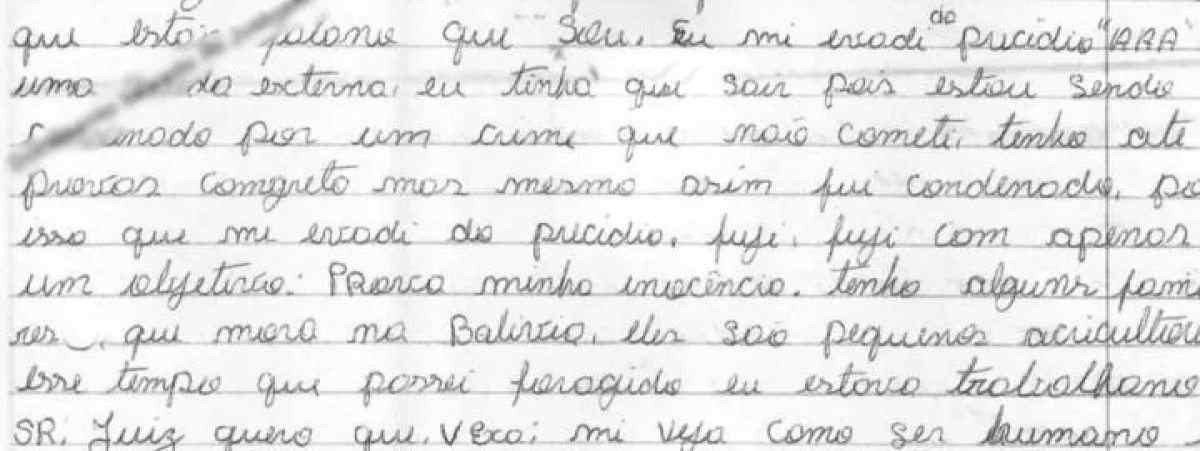 que esto que Seu. Eu mi evadi do precidio "ARA"
uma da externa, eu tinha que sair pois estou sendo
por um crime que não cometi, tenho ate
provas comgreto mas mesmo asim fui condenado, po
isso que mi evadi do precidio. fuji, fuji com apenas
um objetivo: PRova minha inocência. tenho alguns fami
res, que mora na Balivia, eles são pequenos acricultio
esse tempo que passei foragido eu estava trabalhano
SR. Juiz quero que, Vexa: mi veja como ser humano